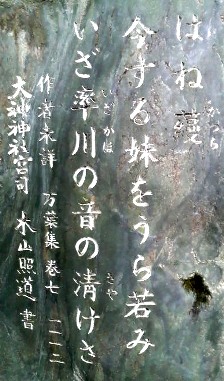 はね蘰
かづら
今する妹をうら若み
いざ率川の音の清けさ
いざかは
さや
作者未詳 万葉集 巻七 一一一二
大神神社宮司 木山照道 書